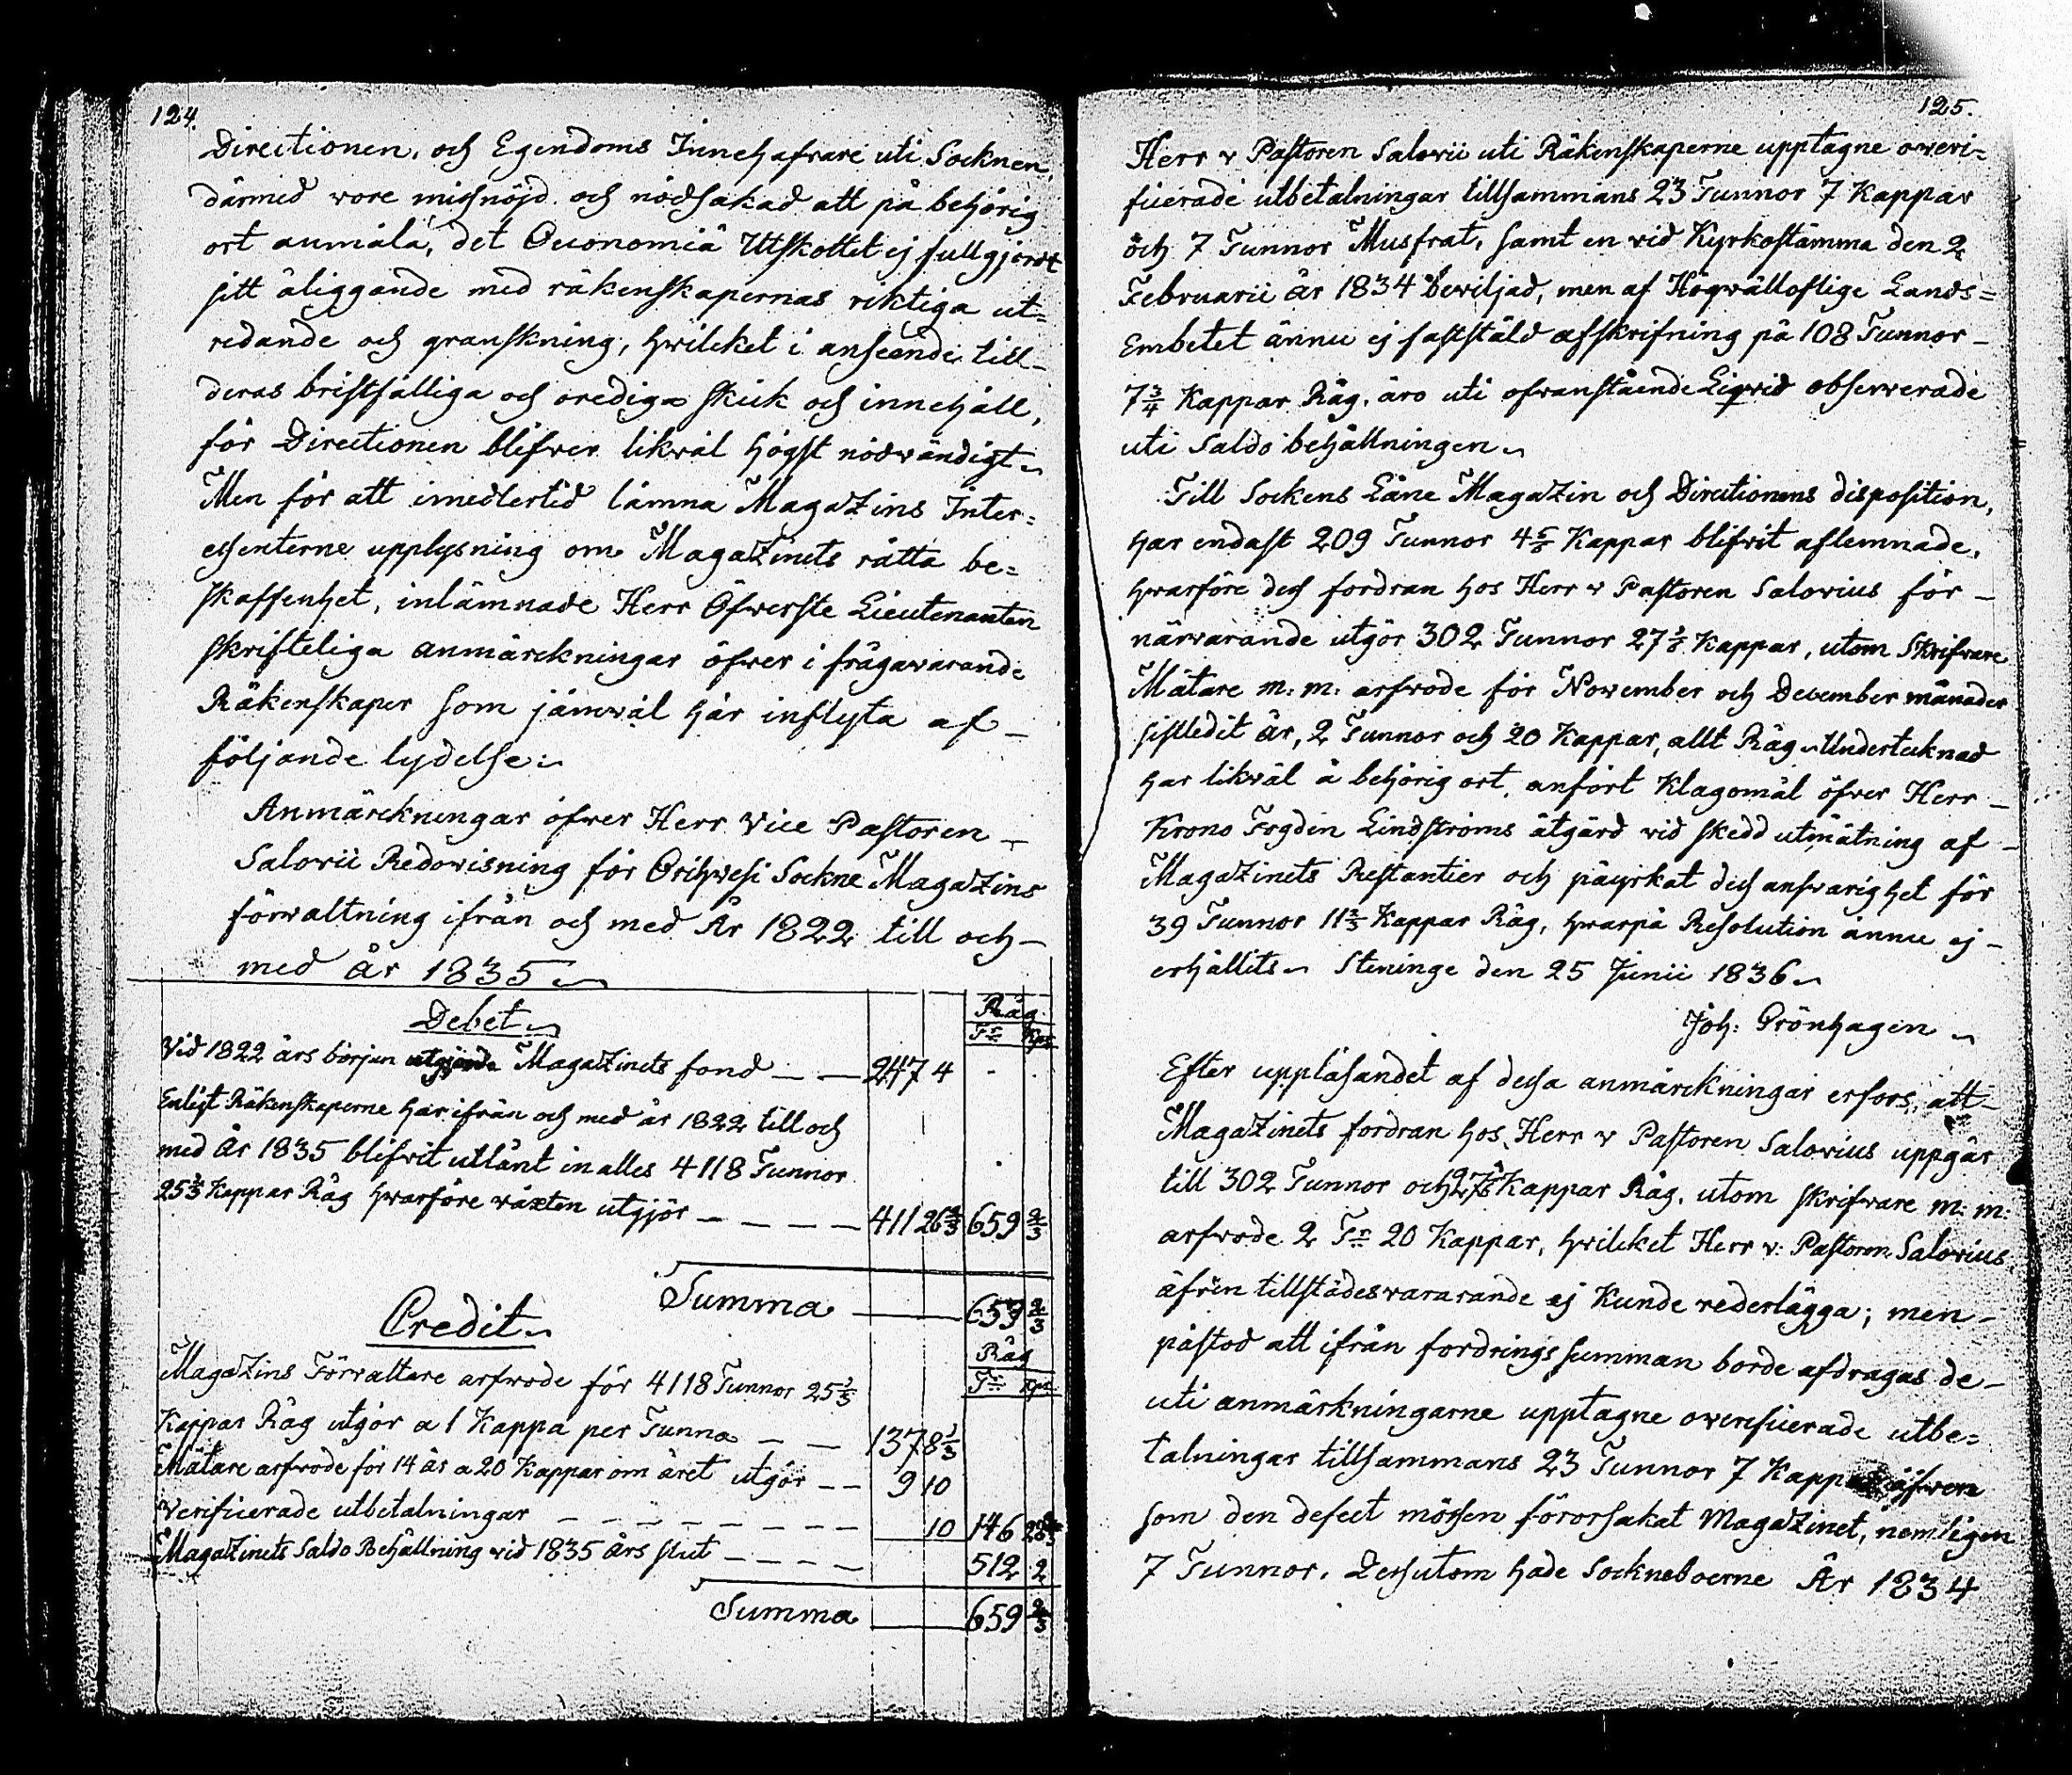 124.
Directionen, och Egendoms Innehafvare uti Socknen,
därmed vore missnöjd och nödsakad att på behörig
ort anmäla, det Oeconomiä Utskottet ej fullgjordt
sitt åliggande med räkenskapernas riktiga ut=
redande och granskning, hvilcket i anseende till
deras bristfälliga och orediga skick och innehåll,
för Directionen blifver likväl högst nödvändigt
Men för att imedlertid lämna Magazins Inter=
essenterne upplysning om Magazinets rätta be=
skaffenhet, inlämnade Herr Öfverste Lieutenanten
skrifteliga anmärckningar öfver i frågavarande
Räkenskaper som jämväl här inflyta af
följande lydelse:
Anmärckningar öfver Herr Vice Pastoren
Salovii Redovisning för Orihvesi Sockne Magazins
förvaltning ifrån och med År 1822 till och
med år 1835
Debet
Råg
Tr Kpr
Vid 1822 års början utgjorde Magazinets fond — — 247 4
Enligt Räkenskaperne har ifrån och med år 1822 till och
med År 1835 blifvit utlånt in alles 4118 Tunnor
25 2/3 Kappar Råg hvarföre växten utgjör — — — — 411 26 2/3 659 2/3
Summa — 659 2/3
Credit
Råg
Tr Kpr
Magazins Förvaltare arfvode för 4118 Tunnor 25 2/3
Kappar Råg utgör a 1 Kappa per Tunna — — 137 8 1/3
Mätare arfvode för 14 år a 20 Kappar om året utgör — — 9 10
Verificerade utbetalningar — — — — — — — 10 146 28 1/3
Magazinets Saldo Behållning vid 1835 års slut — — — — 512 2
Summa 659 2/3
125.
Herr v Pastoren Salovii uti Räkenskaperne upptagne overi=
ficerade utbetalningar tillsammans 23 Tunnor 7 Kappar
och 7 Tunnor Musfrat, samt en vid Kyrkostämma den 2
Februarii år 1834 beviljad, men af Högvälloflige Lands=
Embetet ännu ej fastställd afskrifning på 108 Tunnor
7 3/4 Kappar Råg, äro uti ofvanstående Liqvid observerade
uti Saldo behållningen
Till Sockens Låne Magazin och Directionens disposition,
har endast 209 Tunnor 4 Kappar blifvit aflemnade,
hvarföre dess fordran hos Herr v Pastoren Salovius för
närvarande utgör 302 Tunnor 27 Kappar, utom Skrifvare
Mätare m: m: arfvode för November och December månader
sistledit år, 2 Tunnor och 20 Kappar, allt Råg. Undertecknad
har likväl å behörig ort, anfört Klagomål öfver Herr
Krono Fogden Lindströms åtgärd vid skedd utmätning af
Magazinets Restantier och påyrkat dess ansvarighet för
39 Tunnor 11 2/3 Kappar Råg, hvarpå Resolution ännu ej
erhållits. Steninge den 25 Junii 1836
Joh: Grönhagen
Efter uppläsandet af dessa anmärckningar erfors, att
Magazinets fordran hos Herr v Pastoren Salovius uppgår
till 302 Tunnor och 27 Kappar Råg, utom skrifvare m: m:
arfvode 2 Tr 20 Kappar, hvilcket Herr v: Pastoren Salovius,
äfven tillstädesvararande ej kunde vederlägga; men
påstod att ifrån fordrings summan borde afdragas de
uti anmärkningarne upptagne overificerade utbe=
talningar tillsammans 23 Tunnor 7 Kappar äfven
som den defect mössen förorsakat Magazinet, nemligen
7 Tunnor. Dessutom hade Sockneboerne År 1834